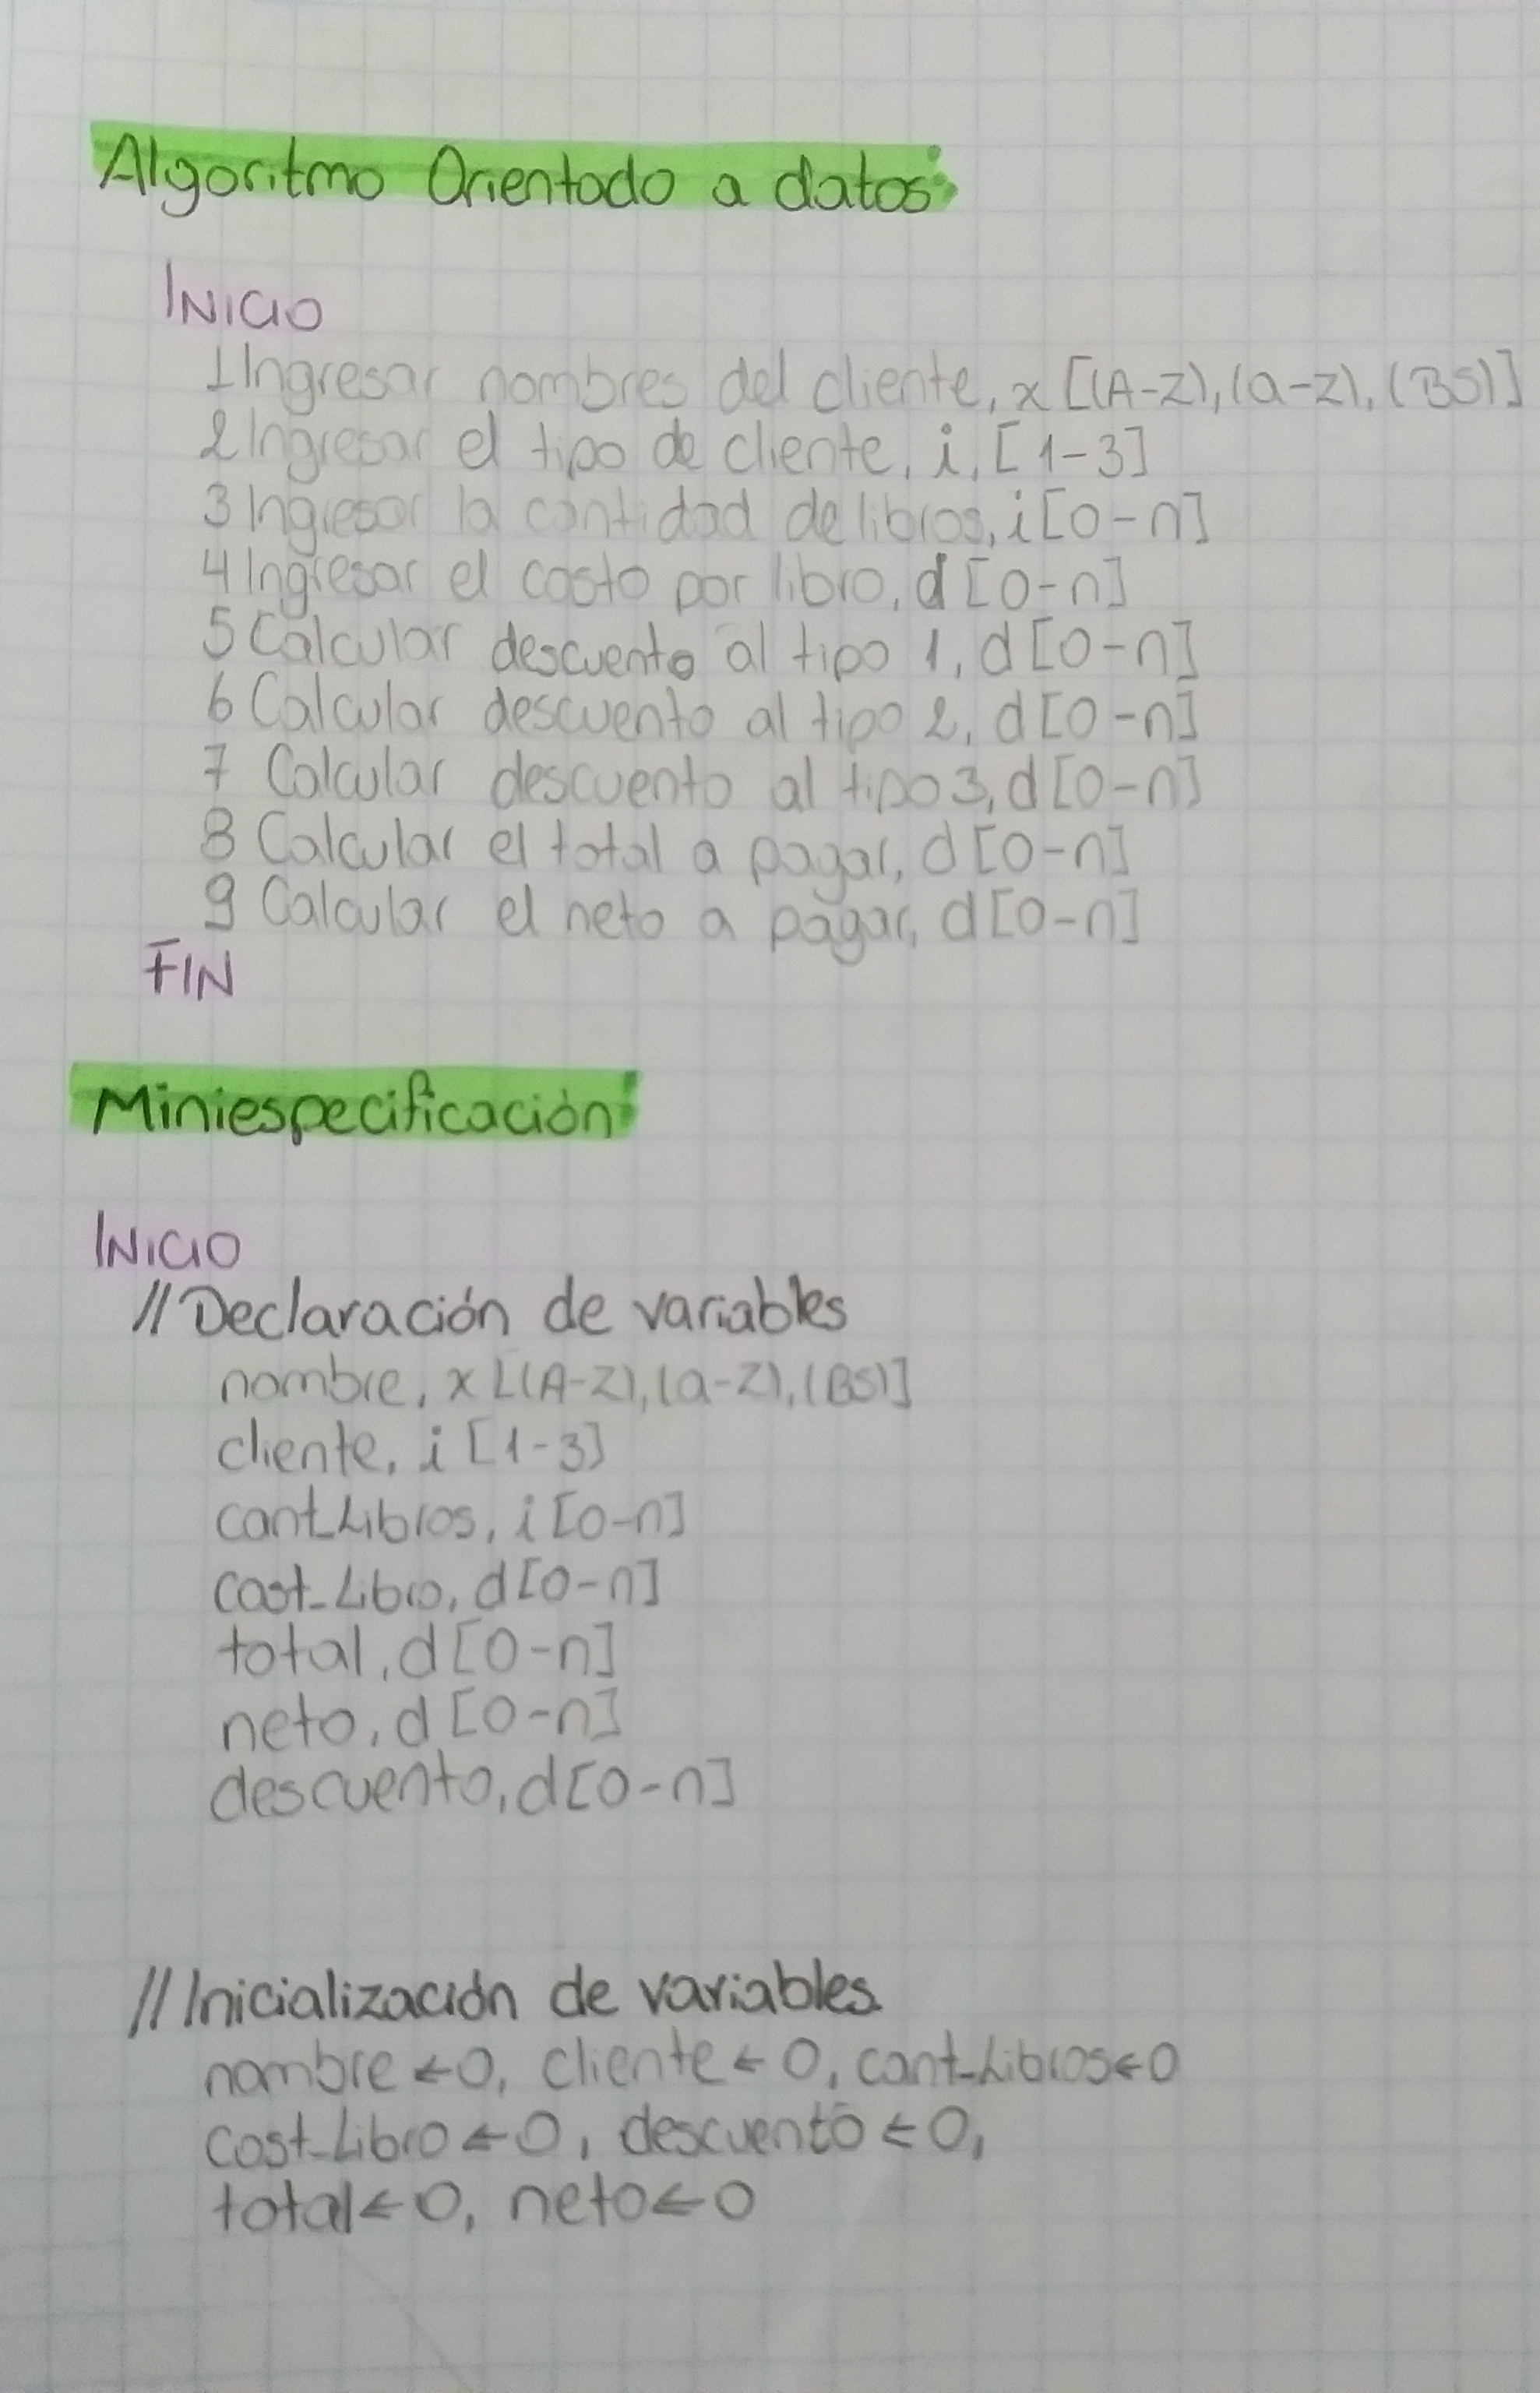 Algoritmo Orientado a datos:
INICIO
1 Ingresar nombres del cliente, x [(A-Z), (a-z), (BS)]
2 Ingresar el tipo de cliente, i, [1-3]
3 Ingresar la cantidad de libros, i [0-n]
4 Ingresar el costo por libro, d [0-n]
5 Calcular descuento al tipo 1, d [0-n]
6 Calcular descuento al tipo 2, d [0-n]
7 Calcular descuento al tipo 3, d [0-n]
8 Calcular el total a pagar, d [0-n]
9 Calcular el neto a pagar, d [0-n]
FIN
Miniespecificación:
INICIO
// Declaración de variables
nombre, x [(A-Z), (a-z), (BS)]
cliente, i [1-3]
cant_Libros, i [0-n]
cost_Libro, d [0-n]
total, d [0-n]
neto, d [0-n]
descuento, d [0-n]
// Inicialización de variables
nombre ← 0, cliente ← 0, cant_Libros ← 0
cost_Libro ← 0, descuento ← 0,
total ← 0, neto ← 0